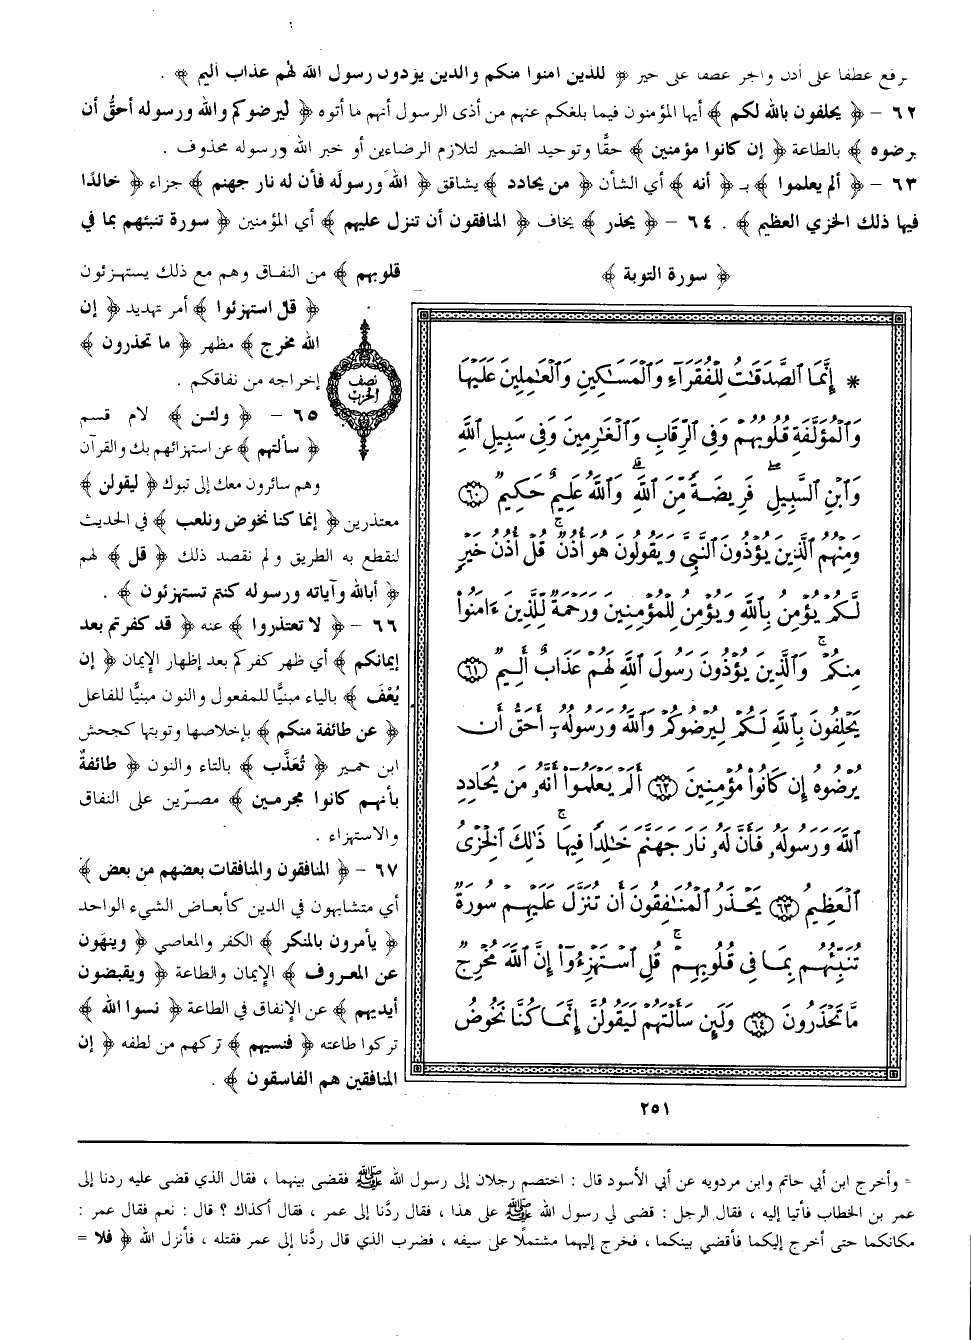 برفع عطفا على أذن والجر عطفا على خير ﴿ للذين آمنوا منكم والذين يؤذون رسول الله لهم عذاب أليم ﴾ .
٦٢ - ﴿ يحلفون بالله لكم ﴾ أيها المؤمنون فيما بلغكم عنهم من أذى الرسول أنهم ما أتوه ﴿ ليرضوكم والله ورسوله أحقُّ أن
يرضوه ﴾ بالطاعة ﴿ إن كانوا مؤمنين ﴾ حقًّا وتوحيد الضمير لتلازم الرضاءين أو خبر الله ورسوله محذوف .
٦٣ - ﴿ ألم يعلموا ﴾ بـ ﴿ أنه ﴾ أي الشأن ﴿ من يحادد ﴾ يشاقق ﴿ الله ورسولَه فأن له نار جهنم ﴾ جزاء ﴿ خالدًا
فيها ذلك الخزي العظيم ﴾ . ٦٤ - ﴿ يحذر ﴾ يخاف ﴿ المنافقون أن تنزل عليهم ﴾ أي المؤمنين ﴿ سورة تنبئهم بما في
﴿ سورة التوبة ﴾
* إِنَّمَا ٱلصَّدَقَٰتُ لِلْفُقَرَآءِ وَٱلْمَسَٰكِينِ وَٱلْعَٰمِلِينَ عَلَيْهَا
وَٱلْمُؤَلَّفَةِ قُلُوبُهُمْ وَفِى ٱلرِّقَابِ وَٱلْغَٰرِمِينَ وَفِى سَبِيلِ ٱللَّهِ
وَٱبْنِ ٱلسَّبِيلِ ۖ فَرِيضَةً مِّنَ ٱللَّهِ ۗ وَٱللَّهُ عَلِيمٌ حَكِيمٌ ٦٠
وَمِنْهُمُ ٱلَّذِينَ يُؤْذُونَ ٱلنَّبِىَّ وَيَقُولُونَ هُوَ أُذُنٌ ۚ قُلْ أُذُنُ خَيْرٍ
لَّكُمْ يُؤْمِنُ بِٱللَّهِ وَيُؤْمِنُ لِلْمُؤْمِنِينَ وَرَحْمَةٌ لِّلَّذِينَ ءَامَنُوا۟
مِنكُمْ ۚ وَٱلَّذِينَ يُؤْذُونَ رَسُولَ ٱللَّهِ لَهُمْ عَذَابٌ أَلِيمٌ ٦١
يَحْلِفُونَ بِٱللَّهِ لَكُمْ لِيُرْضُوكُمْ وَٱللَّهُ وَرَسُولُهُۥٓ أَحَقُّ أَن
يُرْضُوهُ إِن كَانُوا۟ مُؤْمِنِينَ ٦٢ أَلَمْ يَعْلَمُوٓا۟ أَنَّهُۥ مَن يُحَادِدِ
ٱللَّهَ وَرَسُولَهُۥ فَأَنَّ لَهُۥ نَارَ جَهَنَّمَ خَٰلِدًا فِيهَا ۚ ذَٰلِكَ ٱلْخِزْىُ
ٱلْعَظِيمُ ٦٣ يَحْذَرُ ٱلْمُنَٰفِقُونَ أَن تُنَزَّلَ عَلَيْهِمْ سُورَةٌ
تُنَبِّئُهُم بِمَا فِى قُلُوبِهِمْ ۚ قُلِ ٱسْتَهْزِءُوٓا۟ إِنَّ ٱللَّهَ مُخْرِجٌ
مَّا تَحْذَرُونَ ٦٤ وَلَئِن سَأَلْتَهُمْ لَيَقُولُنَّ إِنَّمَا كُنَّا نَخُوضُ
٢٥١
نصف
الحزب
قلوبهم ﴾ من النفاق وهم مع ذلك يستهزئون
﴿ قل استهزئوا ﴾ أمر تهديد ﴿ إن
الله مخرج ﴾ مظهر ﴿ ما تحذرون ﴾
إخراجه من نفاقكم .
٦٥ - ﴿ ولئن ﴾ لام قسم
﴿ سألتهم ﴾ عن استهزائهم بك والقرآن
وهم سائرون معك إلى تبوك ﴿ ليقولن ﴾
معتذرين ﴿ إنما كنا نخوض ونلعب ﴾ في الحديث
لنقطع به الطريق ولم نقصد ذلك ﴿ قل ﴾ لهم
﴿ أبالله وآياته ورسوله كنتم تستهزئون ﴾ .
٦٦ - ﴿ لا تعتذروا ﴾ عنه ﴿ قد كفرتم بعد
إيمانكم ﴾ أي ظهر كفركم بعد إظهار الإيمان ﴿ إن
يُعْفَ ﴾ بالياء مبنيًّا للمفعول والنون مبنيًّا للفاعل
﴿ عن طائفة منكم ﴾ بإخلاصها وتوبتها كجحش
ابن حمير ﴿ تُعَذَّب ﴾ بالتاء والنون ﴿ طائفةٌ
بأنهم كانوا مجرمين ﴾ مصرّين على النفاق
والاستهزاء .
٦٧ - ﴿ المنافقون والمنافقات بعضهم من بعض ﴾
أي متشابهون في الدين كأبعاض الشيء الواحد
﴿ يأمرون بالمنكر ﴾ الكفر والمعاصي ﴿ وينهون
عن المعروف ﴾ الإيمان والطاعة ﴿ ويقبضون
أيديهم ﴾ عن الإنفاق في الطاعة ﴿ نسوا الله ﴾
تركوا طاعته ﴿ فنسيهم ﴾ تركهم من لطفه ﴿ إن
المنافقين هم الفاسقون ﴾ .
= وأخرج ابن أبي حاتم وابن مردويه عن أبي الأسود قال : اختصم رجلان إلى رسول الله ﷺ فقضى بينهما ، فقال الذي قضى عليه ردنا إلى
عمر بن الخطاب فأتيا إليه ، فقال الرجل : قضى لي رسول الله ﷺ على هذا ، فقال ردَّنا إلى عمر ، فقال أكذاك ؟ قال : نعم فقال عمر :
مكانكما حتى أخرج إليكما فأقضي بينكما ، فخرج إليهما مشتملًا على سيفه ، فضرب الذي قال ردَّنا إلى عمر فقتله ، فأنزل الله ﴿ فلا =